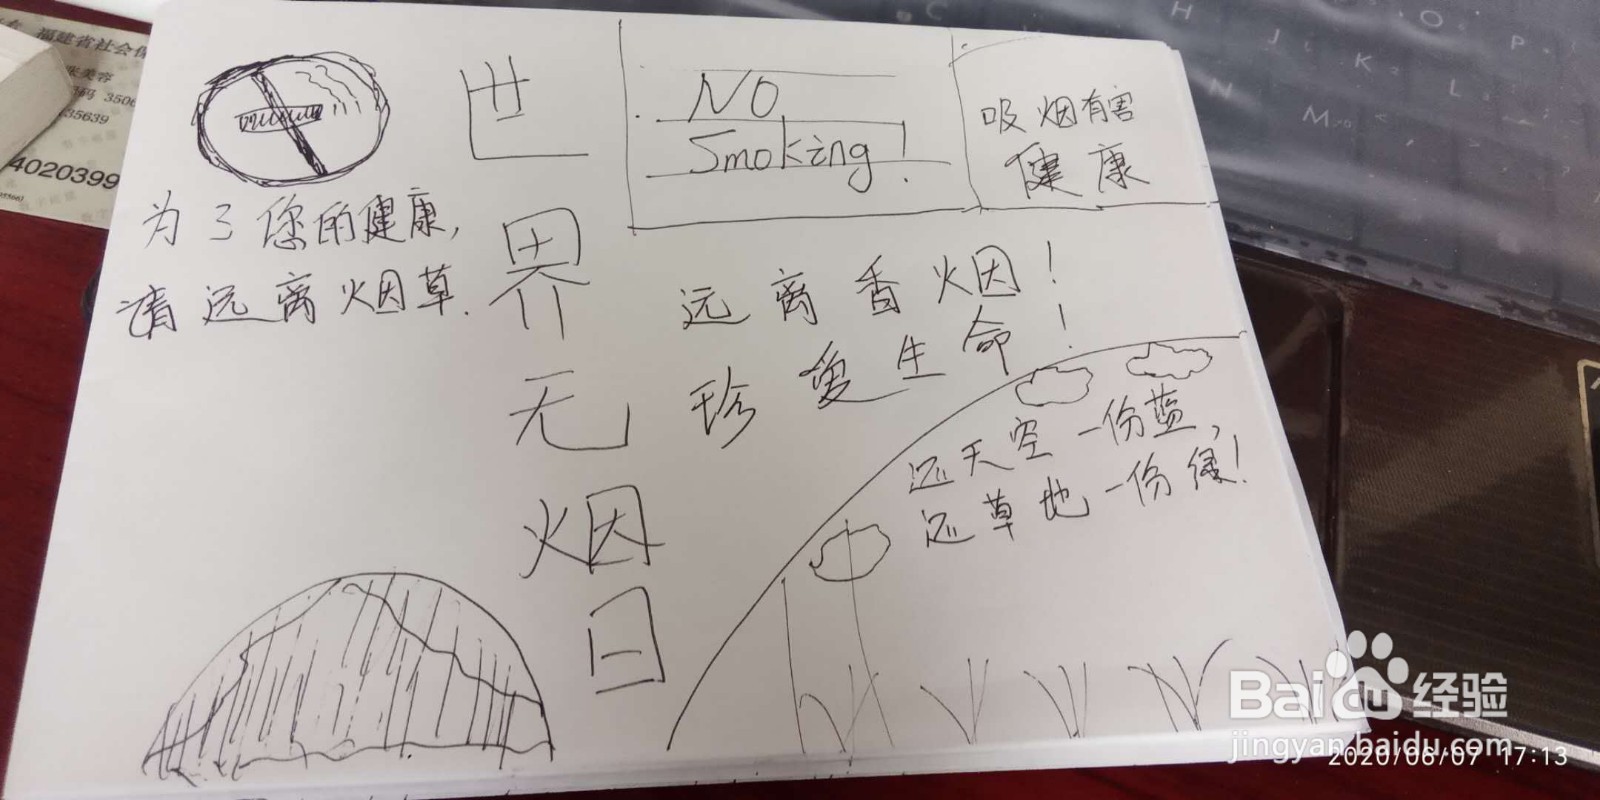 福建省社会保
张美容
码 3506
35639
4020399
世
界
无
烟
日
为了您的健康,
请远离烟草.
NO
Smoking!
吸烟有害
健康
远离香烟!
珍爱生命!
还天空一份蓝,
还草地一份绿!
C
H
J
K
L
O
P
N
M
Baidu经验
jingyan.baidu.com
2020/06/07 17:13